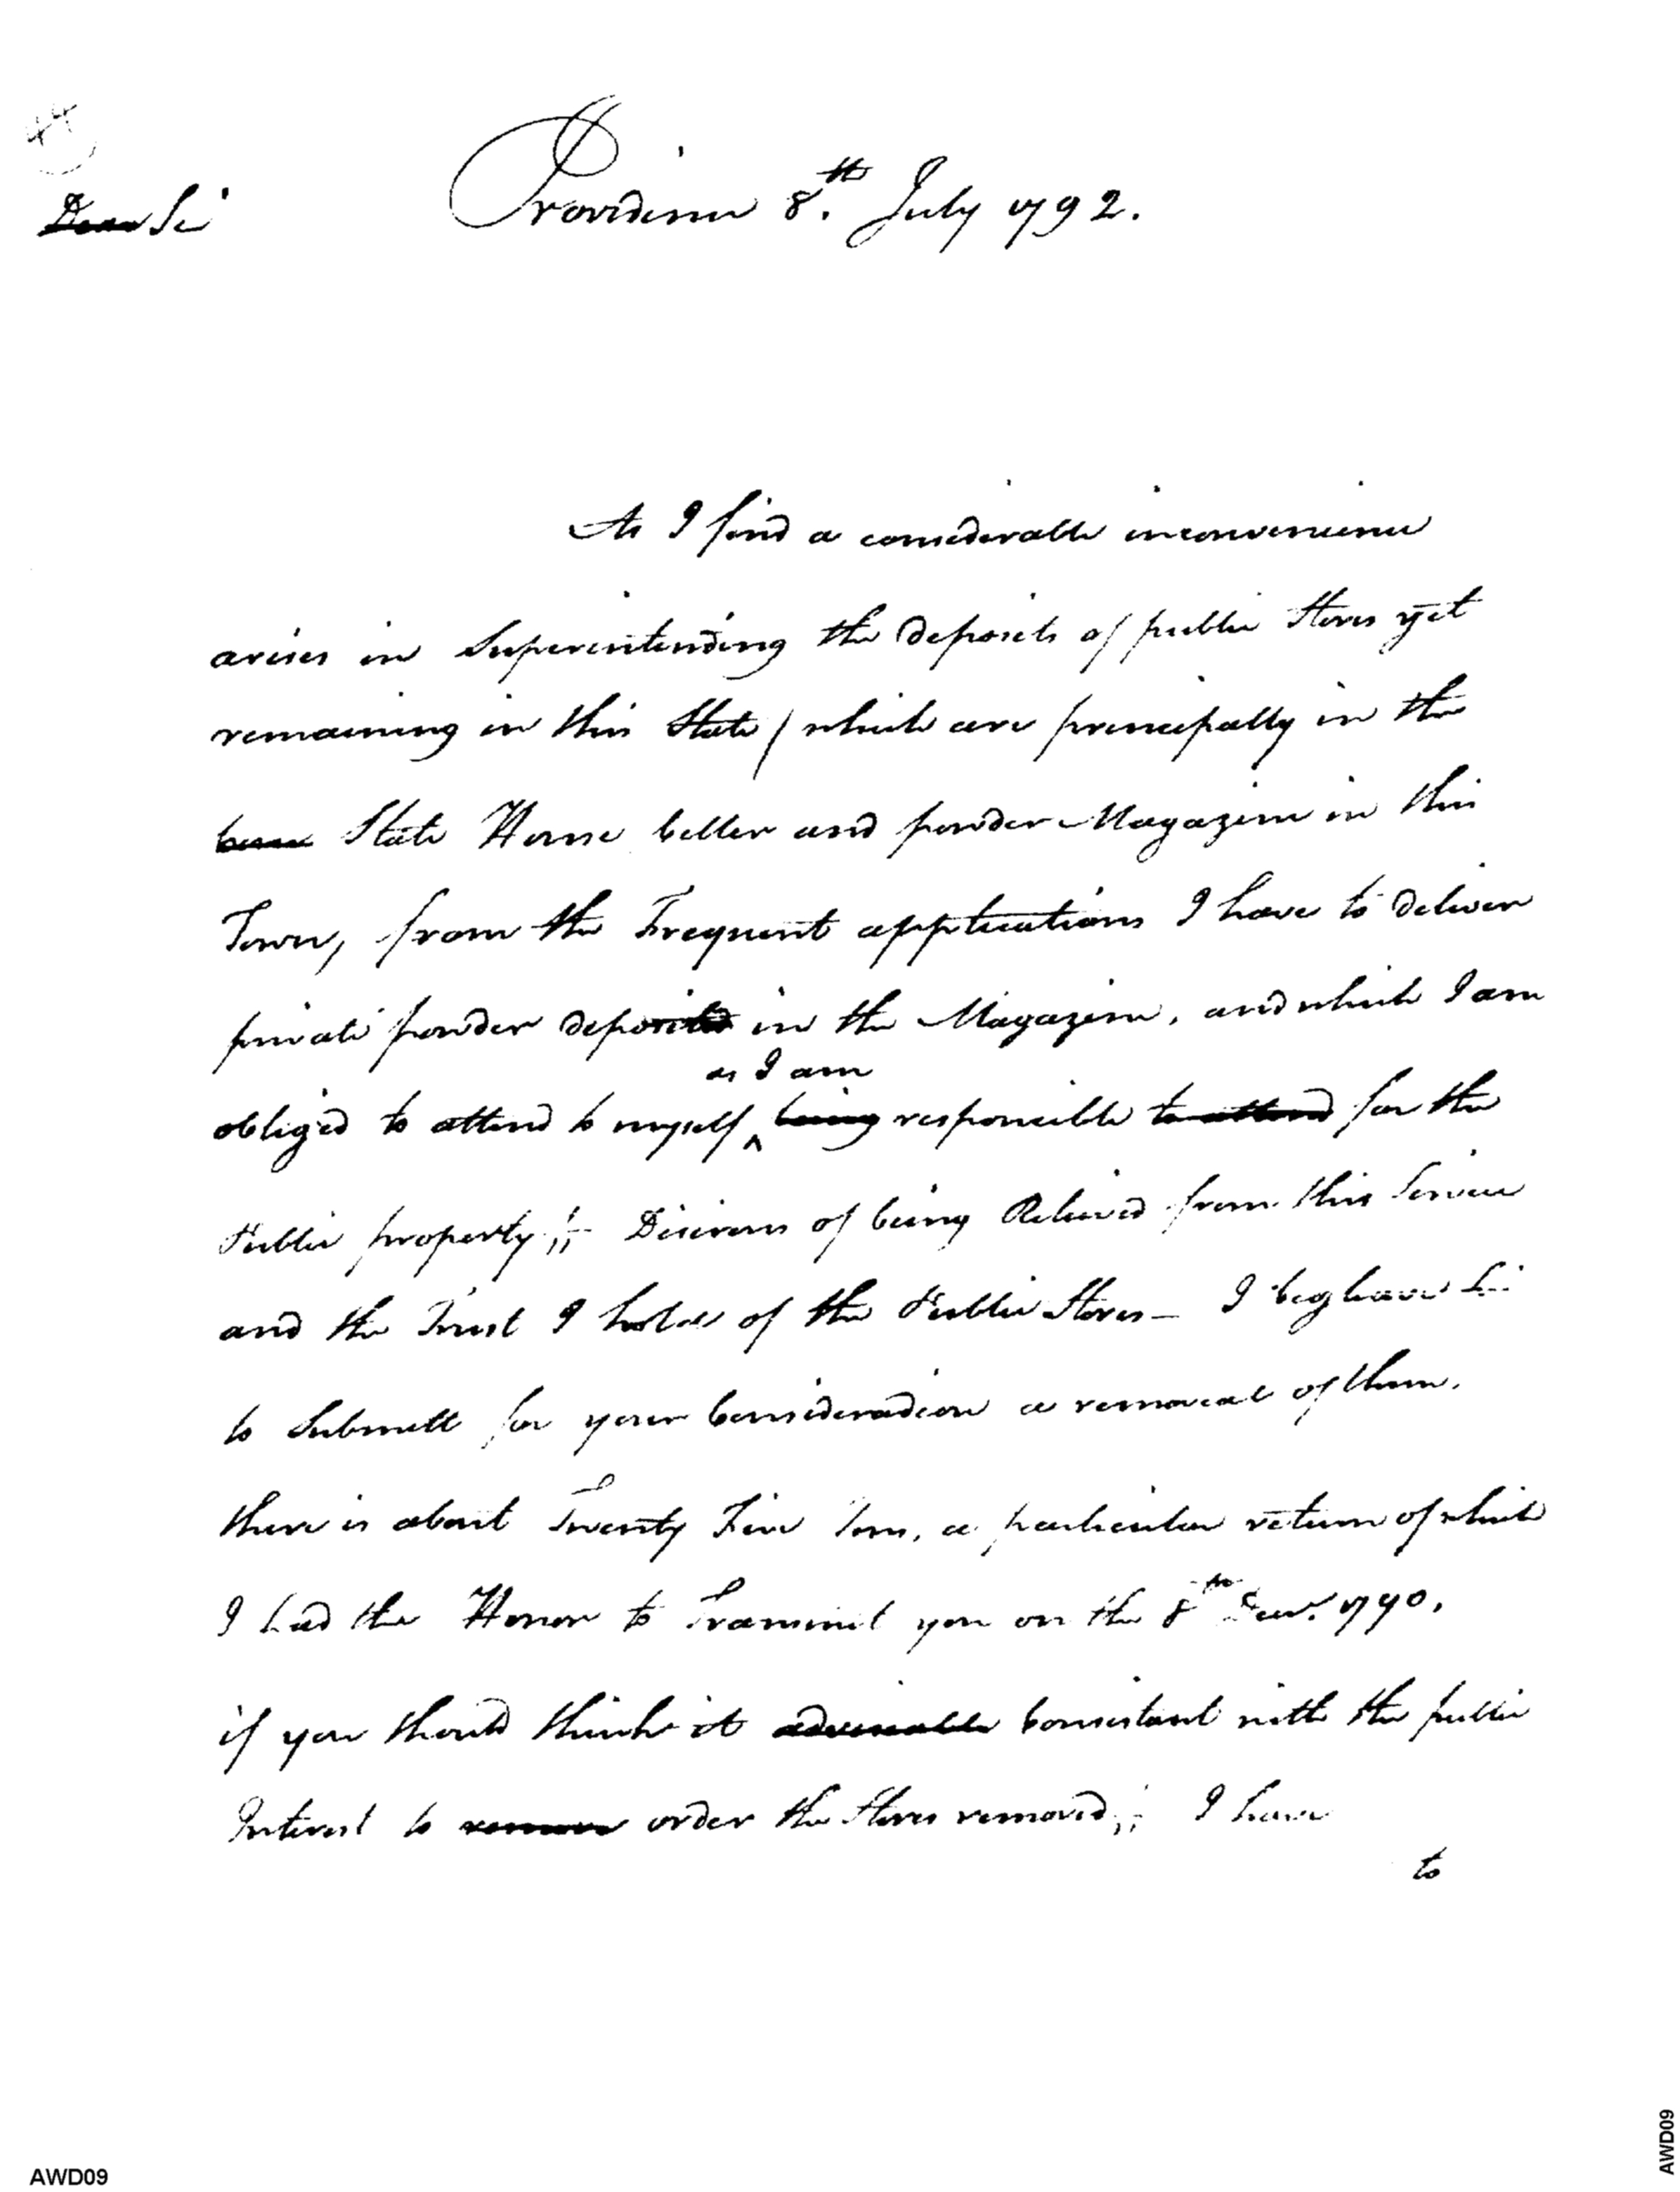 44
Providence 8th. July 1792.
Dear Sir
As I find a considerable inconvenience
arises in Superintending the deposits of public Stores yet
remaining in this State / which are principally in the
State House Celler and powder Magazine in this
Town, from the Frequent applications I have to deliver
private powder deposited in the Magazine, and which I am
as I am
obliged to attend to myself ^ being responcible to attend for the
Public property;; Desirous of being Relieved from this Service
and the Trust I hold of the Public Stores – I beg leave Sir
to Submitt for your Consideration a removeal of them.
there is about Twenty Five Tons, a particular return of which
I had the Honor to Transmit you on the 8th Decr. 1790.
if you should think it adviseable Consistant with the public
Interest to remove order the Stores removed;; I have
to
AWD09
AWD09